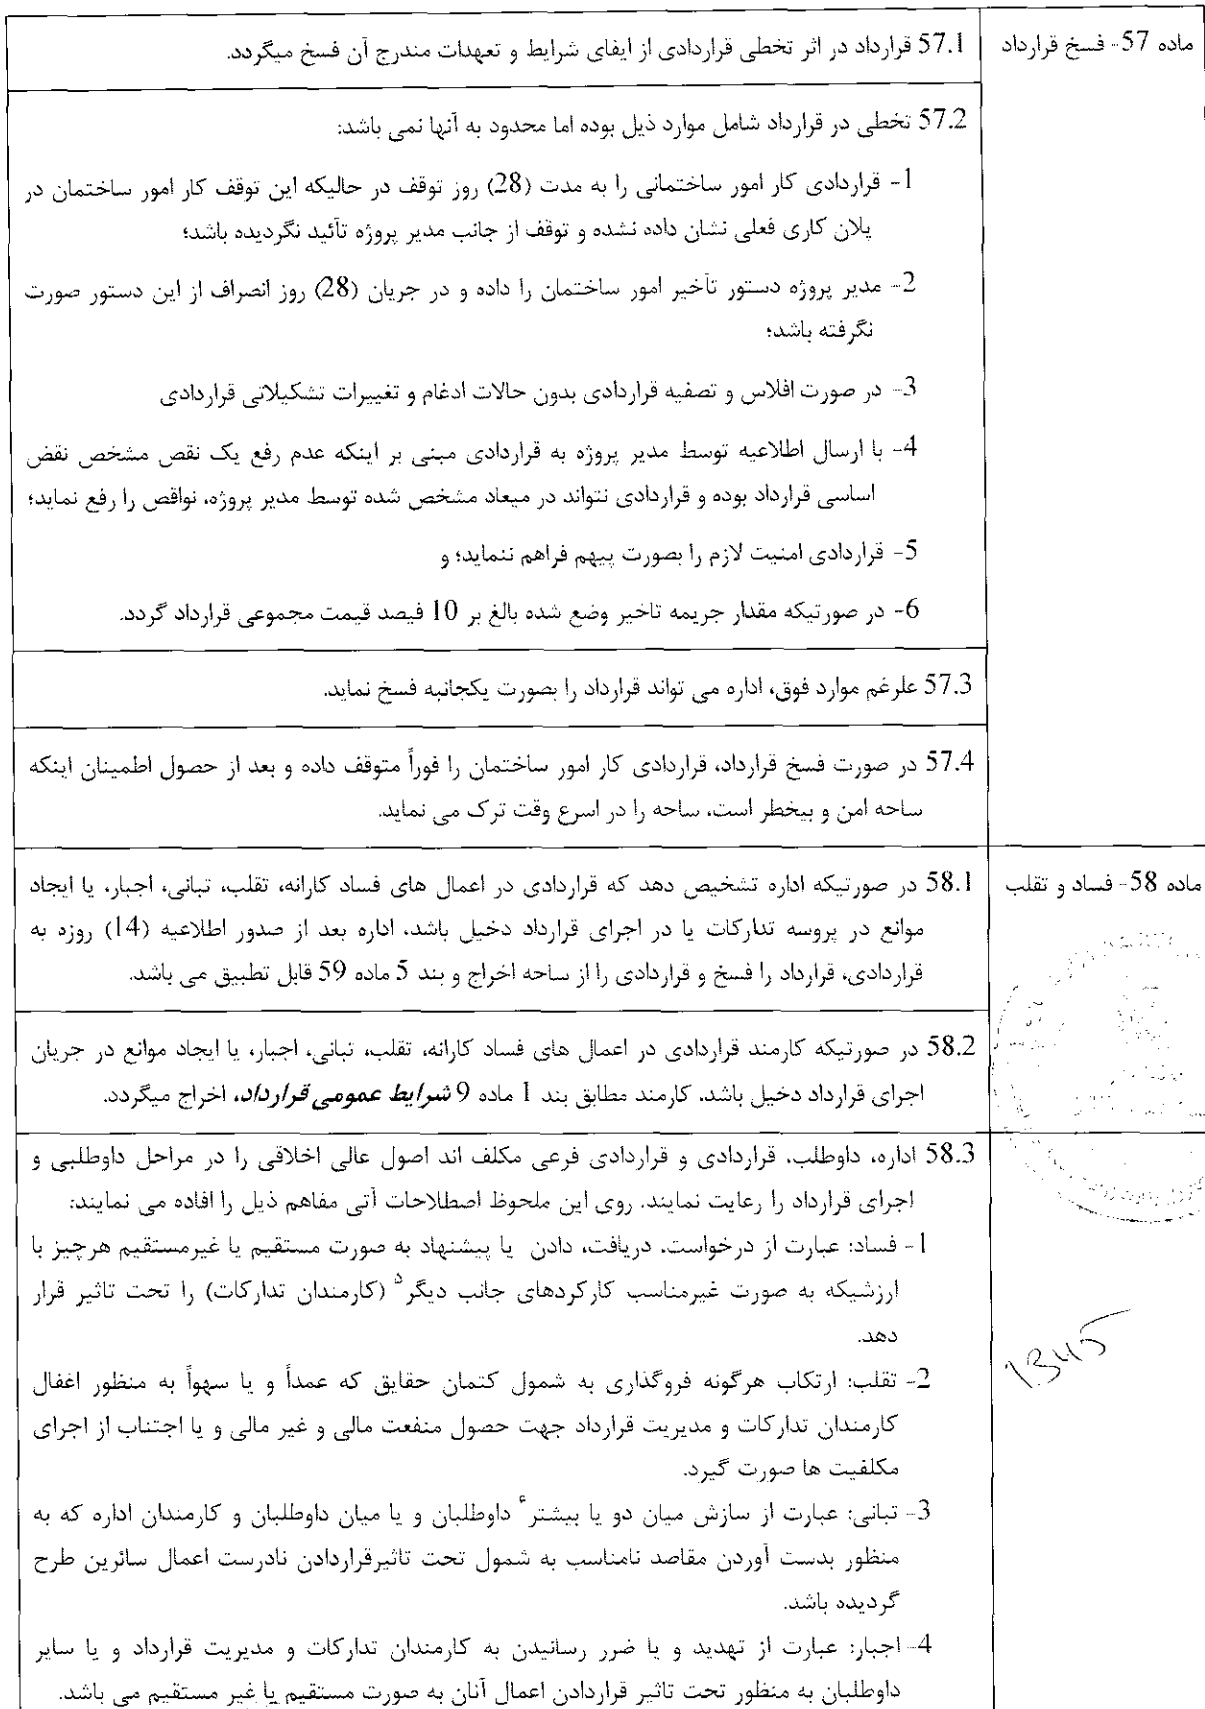 ماده 57- فسخ قرارداد
57.1 قرارداد در اثر تخطی قراردادی از ایفای شرایط و تعهدات مندرج آن فسخ میگردد.
57.2 تخطی در قرارداد شامل موارد ذیل بوده اما محدود به آنها نمی باشد:
1- قراردادی کار امور ساختمانی را به مدت (28) روز توقف در حالیکه این توقف کار امور ساختمان در
پلان کاری فعلی نشان داده نشده و توقف از جانب مدیر پروژه تأئید نگردیده باشد؛
2- مدیر پروژه دستور تأخیر امور ساختمان را داده و در جریان (28) روز انصراف از این دستور صورت
نگرفته باشد؛
3- در صورت افلاس و تصفیه قراردادی بدون حالات ادغام و تغییرات تشکیلاتی قراردادی
4- با ارسال اطلاعیه توسط مدیر پروژه به قراردادی مبنی بر اینکه عدم رفع یک نقص مشخص نقض
اساسی قرارداد بوده و قراردادی نتواند در میعاد مشخص شده توسط مدیر پروژه، نواقص را رفع نماید؛
5- قراردادی امنیت لازم را بصورت پیهم فراهم ننماید؛ و
6- در صورتیکه مقدار جریمه تاخیر وضع شده بالغ بر 10 فیصد قیمت مجموعی قرارداد گردد.
57.3 علرغم موارد فوق، اداره می تواند قرارداد را بصورت یکجانبه فسخ نماید.
57.4 در صورت فسخ قرارداد، قراردادی کار امور ساختمان را فوراً متوقف داده و بعد از حصول اطمینان اینکه
ساحه امن و بیخطر است، ساحه را در اسرع وقت ترک می نماید.
ماده 58- فساد و تقلب
58.1 در صورتیکه اداره تشخیص دهد که قراردادی در اعمال های فساد کارانه، تقلب، تبانی، اجبار، یا ایجاد
موانع در پروسه تدارکات یا در اجرای قرارداد دخیل باشد، اداره بعد از صدور اطلاعیه (14) روزه به
قراردادی، قرارداد را فسخ و قراردادی را از ساحه اخراج و بند 5 ماده 59 قابل تطبیق می باشد.
58.2 در صورتیکه کارمند قراردادی در اعمال های فساد کارانه، تقلب، تبانی، اجبار، یا ایجاد موانع در جریان
اجرای قرارداد دخیل باشد. کارمند مطابق بند 1 ماده 9 شرایط عمومی قرارداد، اخراج میگردد.
58.3 اداره، داوطلب، قراردادی و قراردادی فرعی مکلف اند اصول عالی اخلاقی را در مراحل داوطلبی و
اجرای قرارداد را رعایت نمایند. روی این ملحوظ اصطلاحات آتی مفاهم ذیل را افاده می نمایند:
1- فساد: عبارت از درخواست، دریافت، دادن یا پیشنهاد به صورت مستقیم یا غیرمستقیم هرچیز با
ارزشیکه به صورت غیرمناسب کارکردهای جانب دیگر (کارمندان تدارکات) را تحت تاثیر قرار
دهد.
2- تقلب: ارتکاب هرگونه فروگذاری به شمول کتمان حقایق که عمداً و یا سهواً به منظور اغفال
کارمندان تدارکات و مدیریت قرارداد جهت حصول منفعت مالی و غیر مالی و یا اجتناب از اجرای
مکلفیت ها صورت گیرد.
3- تبانی: عبارت از سازش میان دو یا بیشتر داوطلبان و یا میان داوطلبان و کارمندان اداره که به
منظور بدست آوردن مقاصد نامناسب به شمول تحت تاثیرقراردادن نادرست اعمال سائرین طرح
گردیده باشد.
4- اجبار: عبارت از تهدید و یا ضرر رسانیدن به کارمندان تدارکات و مدیریت قرارداد و یا سایر
داوطلبان به منظور تحت تاثیر قراردادن اعمال آنان به صورت مستقیم یا غیر مستقیم می باشد.